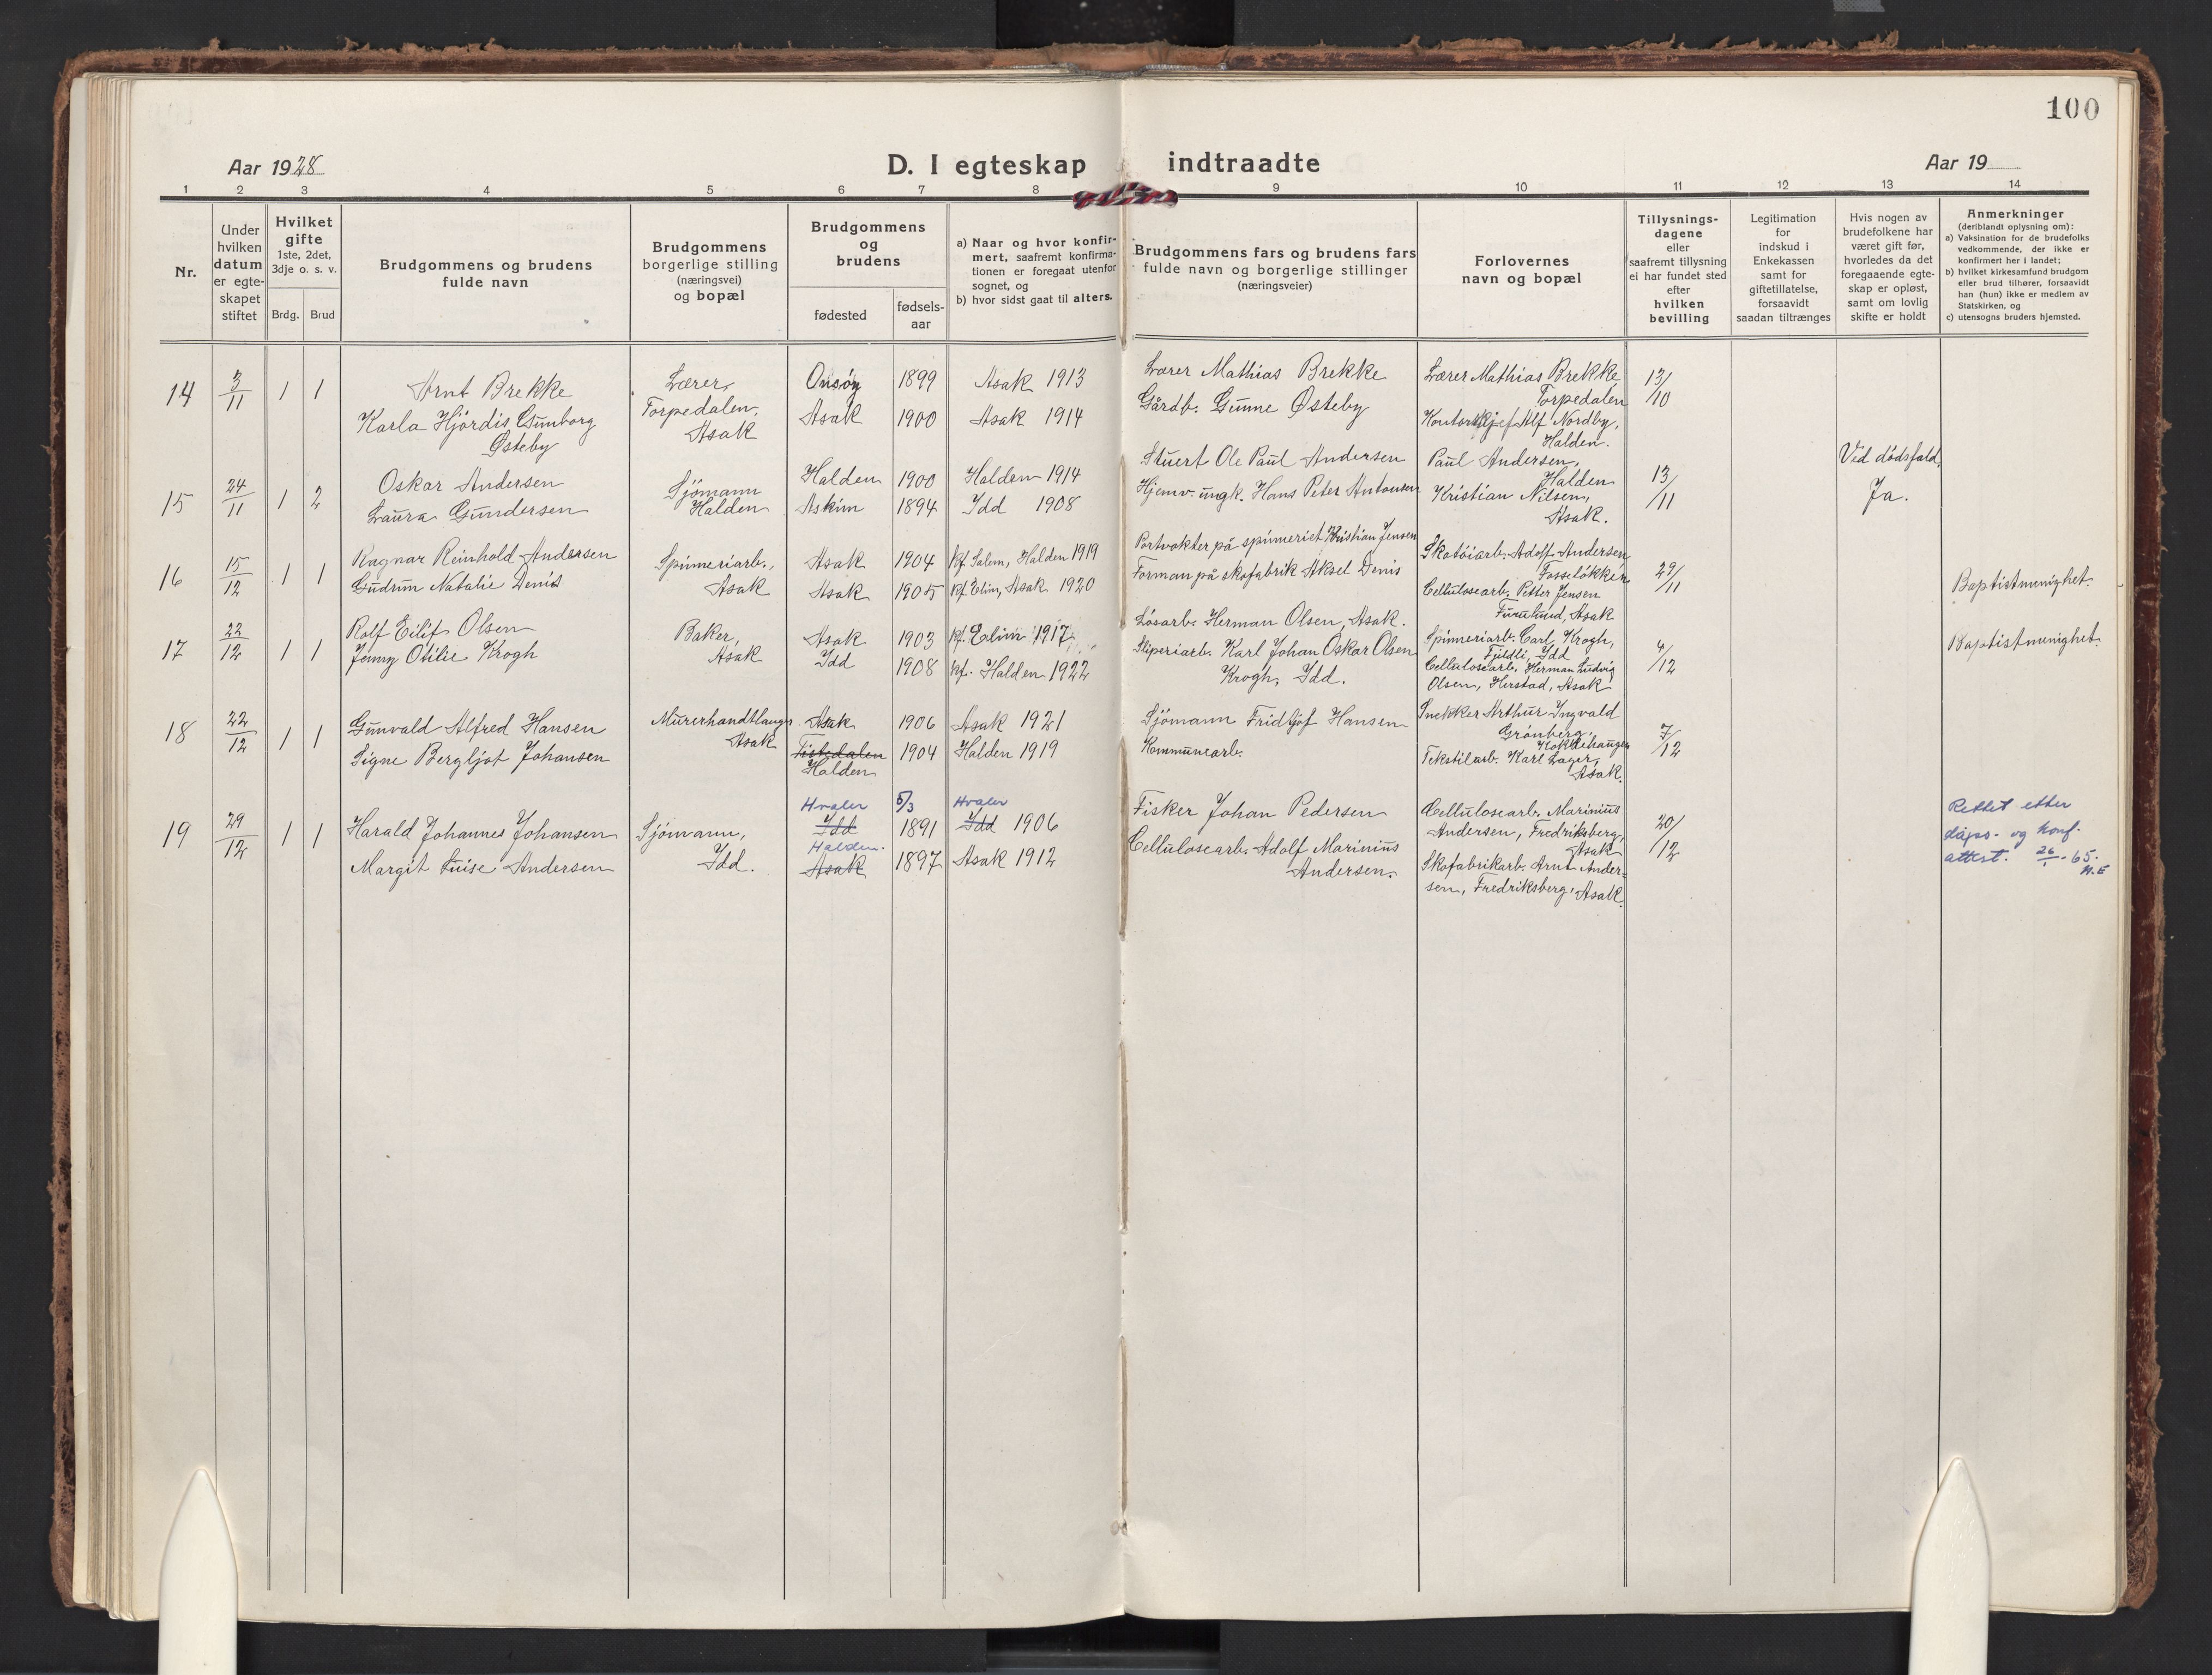 100
Aar 1928
D. I egteskap indtraadte
Aar 19
1 2 3 4 5 6 7 8 9 10 11 12 13 14
Nr.
Under
hvilken
datum
er egte-
skapet
stiftet
Hvilket
gifte
1ste, 2det,
3dje o. s. v.
Brdg. Brud
Brudgommens og brudens
fulde navn
Brudgommens
borgerlige stilling
(næringsvei)
og bopæl
Brudgommens
og
brudens
fødested
fødsels-
aar
a) Naar og hvor konfir-
mert, saafremt konfirma-
tionen er foregaat utenfor
sognet, og
b) hvor sidst gaat til alters.
Brudgommens fars og brudens fars
fulde navn og borgerlige stillinger
(næringsveier)
Forlovernes
navn og bopæl
Tillysnings-
dagene
eller
saafremt tillysning
ei har fundet sted
efter
hvilken
bevilling
Legitimation
for
indskud i
Enkekassen
samt for
giftetillatelse,
forsaavidt
saadan tiltrænges
Hvis nogen av
brudefolkene har
været gift før,
hvorledes da det
foregaaende egte-
skap er opløst,
samt om lovlig
skifte er holdt
Anmerkninger
(deriblandt oplysning om):
a) Vaksination for de brudefolks
vedkommende, der ikke er
konfirmert her i landet;
b) hvilket kirkesamfund brudgom
eller brud tilhører, forsaavidt
han (hun) ikke er medlem av
Statskirken, og
c) utensogns bruders hjemsted.
14
3/11
1 1
Arnt Brekke
Karla Hjördis Gunborg
Østeby
Lærer,
Torpedalen,
Asak
Onsöy 1899 Asak 1913
Asak 1900 Asak 1914
Lærer Mathias Brekke
Gårdb. Gunne Østeby
Lærer Mathias Brekke
Torpedalen
Kontorskjef Alf Nordby,
Halden.
13/10
15
24/11
1 2
Oskar Andersen
Laura Gundersen
Sjömann
Halden
Halden 1900 Halden 1914
Askim 1894 Idd 1908
Stuert Ole Paul Andersen
Hjemv. ungk. Hans Peter Antonsen
Paul Andersen,
Halden
Kristian Nilsen,
Asak.
13/11
Ved dödsfald,
Ja.
16
15/12
1 1
Ragnar Reinhold Andersen
Gudrun Natalie Denis
Spinneriarb.,
Asak
Asak 1904 Kf. Salem, Halden 1919
Asak 1905 Kf. Elim, Asak 1920
Portvakter på spinneriet Kristian Jensen
Forman på skofabrik Aksel Denis
Skotöiarb. Adolf Andersen
Fosselökken
Cellulosearb. Petter Jensen
Furulund, Asak
29/11
Baptistmenighet.
17
22/12
1 1
Rolf Eilif Olsen
Jenny Otilie Krogh
Baker,
Asak
Asak 1903 Kf. Elim 1917
Idd 1908 Kf. Halden 1922
Lösarb. Herman Olsen, Asak.
Sliperiarb. Karl Johan Oskar Olsen
Krogh, Idd.
Spinneriarb. Carl Krogh,
Fjeldli, Idd
Cellulosearb. Herman Ludvig
Olsen, Herstad, Asak
4/12
Baptistmenighet.
18
22/12
1 1
Gunvald Alfred Hansen
Signe Bergljot Johansen
Murerhandtlanger
Asak
Asak 1906 Asak 1921
Tistedalen 1904 Halden 1919
Halden
Sjömann Fridtjof Hansen
Kommunearb.
Snekker Arthur Ingvald
Grönberg,
Tekstilarb. Karl Lager,
Asak.
7/12
19
29/12
1 1
Harald Johannes Johansen
Margit Luise Andersen
Sjömann,
Idd.
Hvaler 5/3 Hvaler
Idd 1891 Idd 1906
Halden.
Asak 1897 Asak 1912
Fisker Johan Pedersen
Cellulosearb. Adolf Marinius
Andersen.
Cellulosearb. Marinius
Andersen, Fredriksberg,
Asak.
Skofabrikarb. Arnt Ander-
sen, Fredriksberg, Asak.
20/12
Rettet etter
dåps- og konf.
attest. 26/1 - 65.
H.E